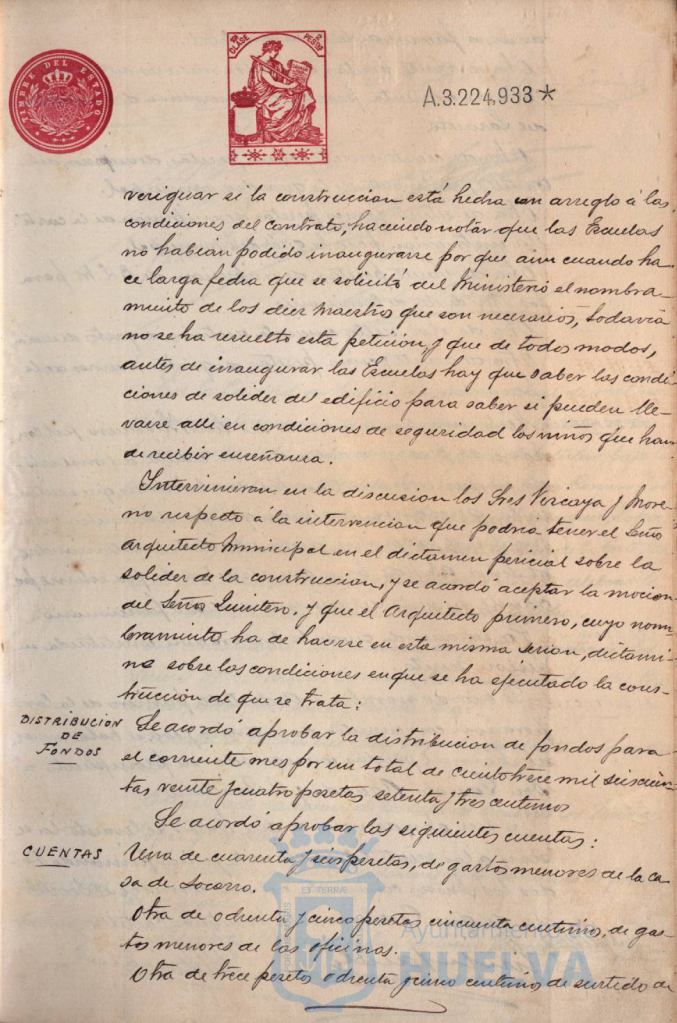 TIMBRE DEL ESTADO
CLASE PESETAS
A.3.224,933*
veriguar si la construccion está hecha con arreglo á las
condiciones del contrato, haciendo notar que las Escuelas
no habian podido inaugurarse por que aun cuando ha-
ce larga fecha que se solicitó del Ministerio el nombra-
miento de los diez Maestros que son necesarios, todavia
no se ha resuelto esta petición y que de todos modos,
antes de inaugurar las Escuelas hay que saber las condi-
ciones de solidez del edificio para saber si pueden lle-
varse alli en condiciones de seguridad los niños que han
de recibir enseñanza.
Intervinieron en la discusion los Sres Vizcaya y More-
no respecto á la intervencion que podria tener el Señor
Arquitecto Municipal en el dictamen pericial sobre la
solidez de la construccion, y se acordó aceptar la mocion
del Señor Quintero, y que el Arquitecto primero, cuyo nom-
bramiento ha de hacerse en esta misma sesion, dictami-
ne sobre las condiciones en que se ha ejecutado la cons-
trucción de que se trata:
DISTRIBUCION
DE
FONDOS
Se acordó aprobar la distribucion de fondos para
el corriente mes por un total de ciento trece mil seiscien-
tas veinte y cuatro pesetas setenta y tres centimos
Se acordó aprobar las siguientes cuentas:
CUENTAS
Una de cuarenta y seis pesetas, de gastos menores de la ca-
sa de Socorro.
Otra de ochenta y cinco pesetas cincuenta centimos, de gas-
tos menores de las oficinas.
Otra de trece pesetas ochenta y cinco centimos de surtido de
Ayuntamiento de
HUELVA